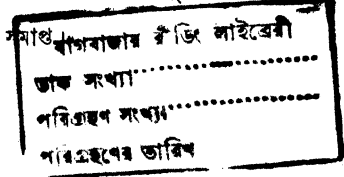 সমাপ্ত
বাগবাজার রীডিং লাইব্রেরী
ডাক সংখ্যা
পরিগ্রহণ সংখ্যা
পরিগ্রহণের তারিখ